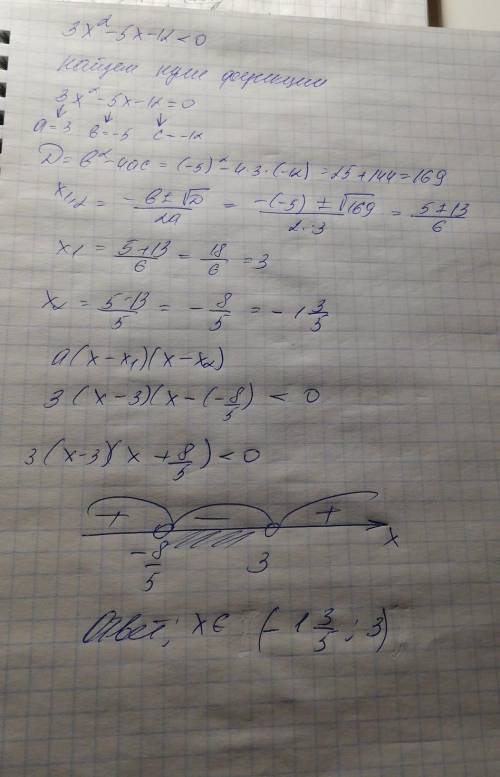 3x²-5x-12<0
найдем нули функции
3x²-5x-12=0
a=3 b=-5 c=-12
D=b²-4ac=(-5)²-4·3·(-12)=25+144=169
x₁,₂ = (-b±√D)/2a = (-(-5)±√169)/2·3 = (5±13)/6
x₁ = (5+13)/6 = 18/6 = 3
x₂ = (5-13)/5 = -8/5 = -1 3/5
a(x-x₁)(x-x₂)
3(x-3)(x-(-8/5)) < 0
3(x-3)(x+8/5)<0
+ - +
-8/5 3 x
Ответ; x∈ (-1 3/5; 3)